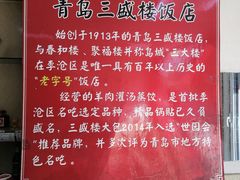 青岛三盛楼饭店
始创于1913年的青岛三盛楼饭店，
与春和楼、聚福楼并称岛城"三大楼"
在李沧区是唯一具有百年以上历史的
"老字号"饭店。
经营的羊肉灌汤蒸饺，是首批李
沧区名吃选定品种，精品锅贴已久负
盛名，三盛楼大包2014年入选"世园会
"推荐品牌，并多次评为青岛市地方特
色名吃。